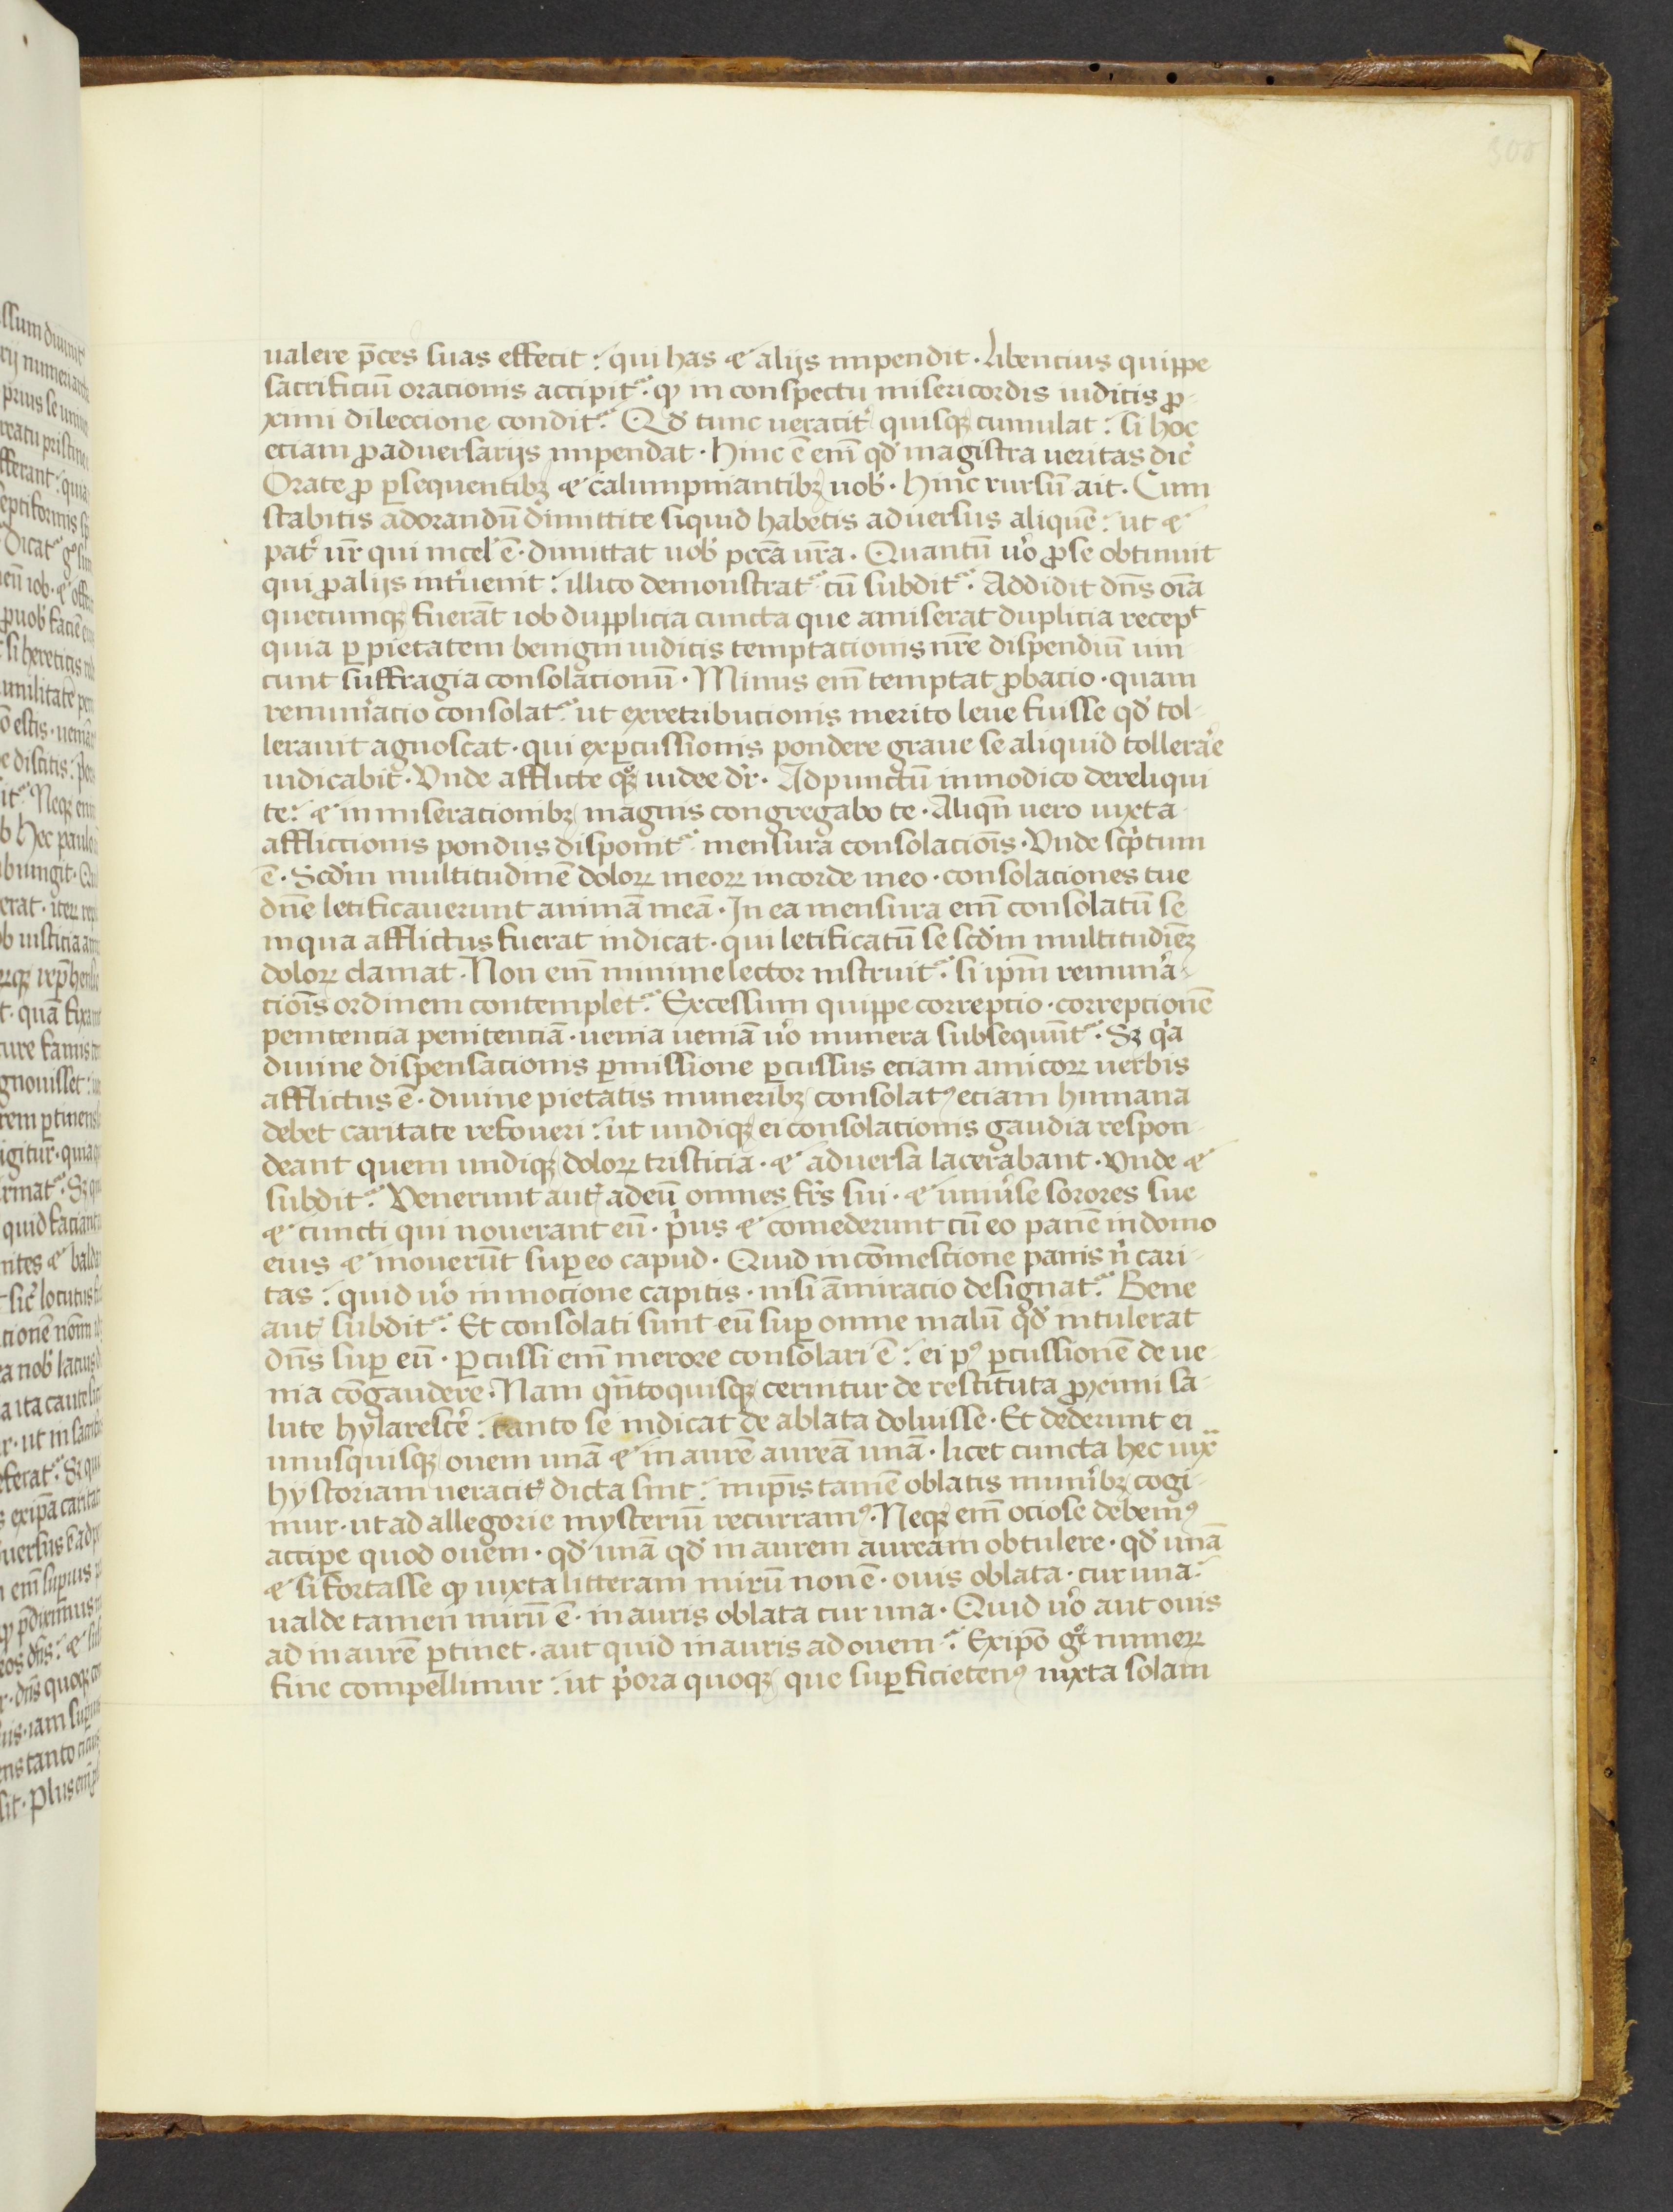 308
ualere p̄ces suas effecit : qui has & alijs impendit . Libencius quippe
sacrificiū oracionis accipit᷑ . ꝙ in conspectu misericordis iudicis ꝓ-
ximi dileccione condit᷑ . Qđ tunc ueracit̉ quisqꝫ cumulat : si hoc
eciam ꝓ aduersarijs impendat . Hinc ē em̄ qđ magistra ueritas dic̉
Orate ꝓ ꝑsequentibꝫ & calumpniantibꝫ uob̉ . Hinc rursū ait . Cum
stabitis ad orandū dimittite siquid habetis aduersus aliquē : ut &
pat̉ ur̄ qui in cel̉ ē . dimittat uob̉ pcc̄a ur̄a . Quantū ủo ꝓ se obtinuit
qui ꝓ alijs int̉uenit : illico demonstrat᷑ cū subdit᷑ . Addidit dn̄s om̄ia
quecumqꝫ fuerāt iob dupplicia cuncta que amiserat duplicia recepᵗ
quia ꝑ pietatem benigni iudicis temptacionis nr̄e dispendiū uin
cunt suffragia consolacionū . Minus em̄ temptat ꝓbacio . quam
remun̉acio consolat᷑ ut ex retribucionis merito leue fuisse qđ tol-
lerauit agnoscat . qui ex ꝑcussionis pondere graue se aliquid tollerảe
iudicabit . Vnde afflicte qͦꝫ iudee dr̄ . Ad punctū in modico dereliqui
te : & in miseracionibꝫ magnis congregabo te . Aliqn̄ uero iuxta
affliccionis pondus disponit᷑ mensura consolaciōis . Vnde scp̉tum
ē . Scđm multitudinē doloꝝ meoꝝ in corde meo . consolaciones tue
dn̄e letificauerunt animā meā . In ea mensura em̄ consolatū se
in qua afflictus fuerat indicat . qui letificatū se scđm multitudiēꝫ
doloꝝ clamat . Non em̄ minime lector instruit᷑ . si ipm̄ remun̉a-
ciōis ordinem contemplet᷑ . Excessum quippe correpcio . correpcionē
penitencia penitenciā . uenia ueniā ủo munera subsequūt᷑ . Sꝫ q̉a
diuine dispensacionis ꝑmissione ꝑcussus eciam amicoꝝ uerbis
afflictus ē . diuine pietatis muneribꝫ consolatꝰ eciam humana
debet caritate refoueri : ut undiqꝫ ei consolacionis gaudia respon-
deant quem undiqꝫ doloꝝ tristicia . & aduersa lacerabant . Vnde &
subdit᷑ . Venerunt aut̉ ad eū omnes fr̄s sui . & uniủse sorores sue
& cuncti qui nouerant eū . p̉us & comederunt cū eo panē in domo
eius & mouerūt suꝑ eo capud . Quid in cōmescione panis n̉ cari-
tas : quid ủo in mocione capitis . nisi āmiracio designat᷑ . Bene
aut̉ subdit᷑ . Et consolati sunt eū suꝑ omne malū qđ intulerat
dn̄s suꝑ eū . Percussi em̄ merore consolari ē : ei pꝰ ꝑcussionē de ue-
nia cōgaudere . Nam qn̄to quisqꝫ cernitur de restituta ꝓximi sa-
lute hylarescẻ : tanto se indicat de ablata doluisse . Et dederunt ei
unusquisqꝫ ouem unā & in aurē aureā unā . licet cuncta hec iux̄
hystoriam ueracit̉ dicta sint : in ip̄is tamē oblatis mun̉ibꝫ cogi-
mur . ut ad allegorie mysteriū recurramꝰ . Neqꝫ em̄ ociose debemꝰ
accipe quod ouem . qđ unā qđ in aurem auream obtulere . qđ unā
& si fortasse ꝙ iuxta litteram mirū non ē . ouis oblata . cur una :
ualde tamen mirū ē . in auris oblata cur una . Quid ủo aut ouis
ad in aurē ꝑtinet . aut quid in auris ad ouem : Ex ip̄o gͦ muneꝝ
fine compellimur : ut p̉ora quoqꝫ que suꝑficietenꝰ iuxta solam